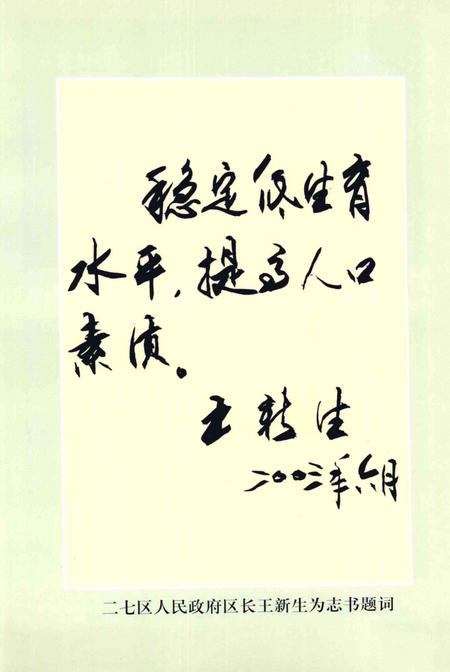 稳定低生育
水平，提高人口
素质。
王新生
二〇〇三年六月
二七区人民政府区长王新生为志书题词